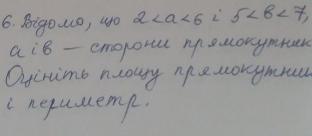 6. Відомо, що 2<a<6 і 5<b<7,
a i b – сторони прямокутник
Оцініть площу прямокутни
і периметр.